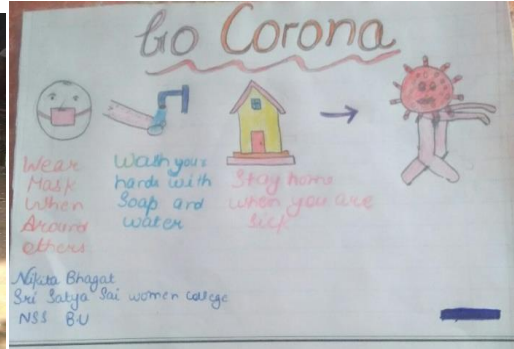 Go Corona
Wear
Mask
When
Around
others
Wash your
hands with
Soap and
water
Stay home
when you are
sick
Nikita Bhagat
Sri Satya Sai women college
NSS BU